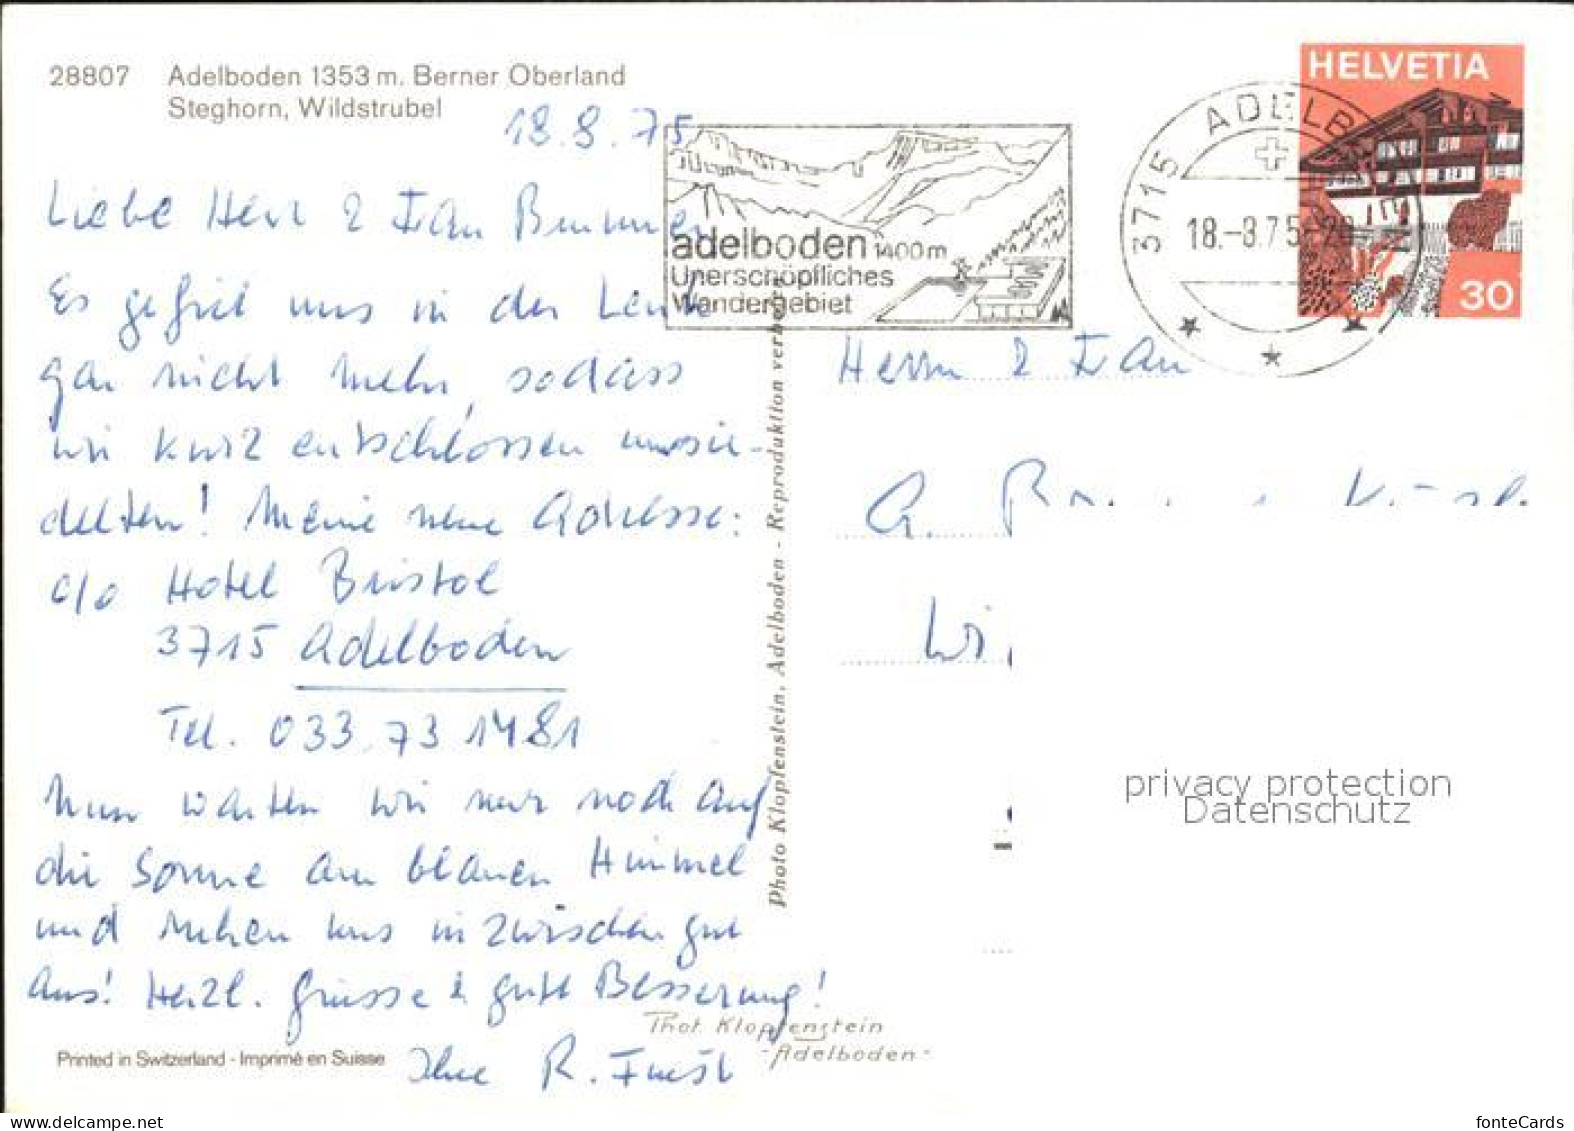 28807 Adelboden 1353 m. Berner Oberland
Steghorn, Wildstrubel
18.8.75
Liebe Herr & Frau Brunner
Es gefiel uns in der Lenk
gar nicht mehr, sodass
wir kurz entschlossen umsie-
delten! Meine neue Adresse:
c/o Hotel Bristol
3715 Adelboden
Tel. 033 73 1481
Nun warten wir nur noch auf
die Sonne am blauen Himmel
und ruhen uns inzwischen gut
aus! Herzl. Grüsse & gute Besserung!
Ihre R.
Printed in Switzerland - Imprimé en Suisse
Phot. Klopfenstein
- Adelboden -
Photo Klopfenstein, Adelboden - Reproduktion verboten
adelboden 1400m
Unerschöpfliches
Wandergebiet
3715 ADELBODEN
18.-8.75-20
HELVETIA
30
Herrn & Frau
privacy protection
Datenschutz
fonteCards